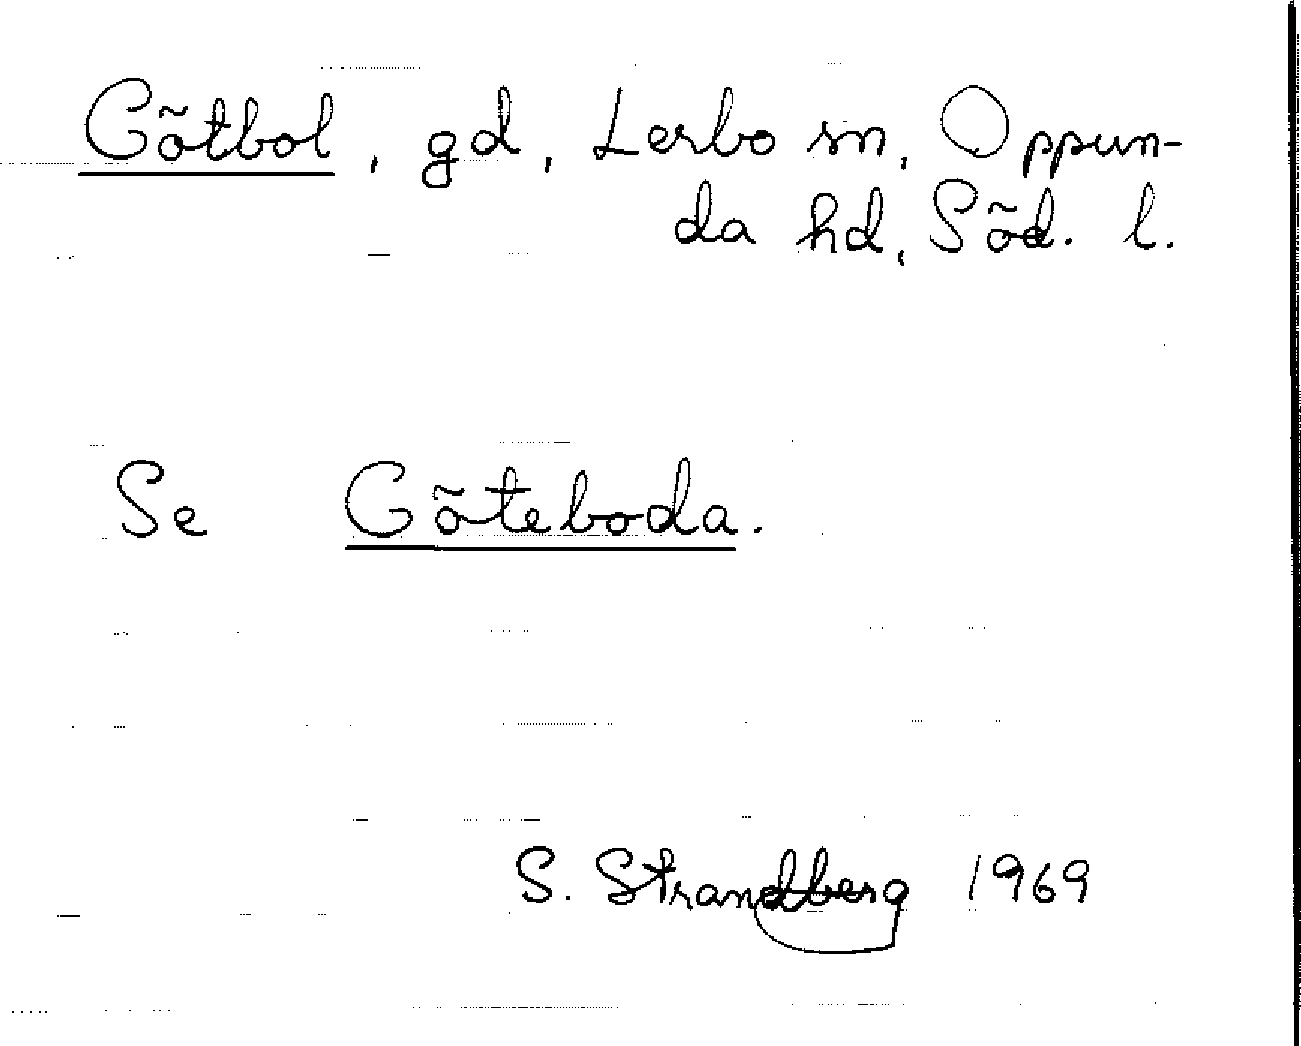 Götbol, gd, Lerbo sn, Oppun-
da hd, Söd. l.
Se Göteboda.
S. Strandberg 1969